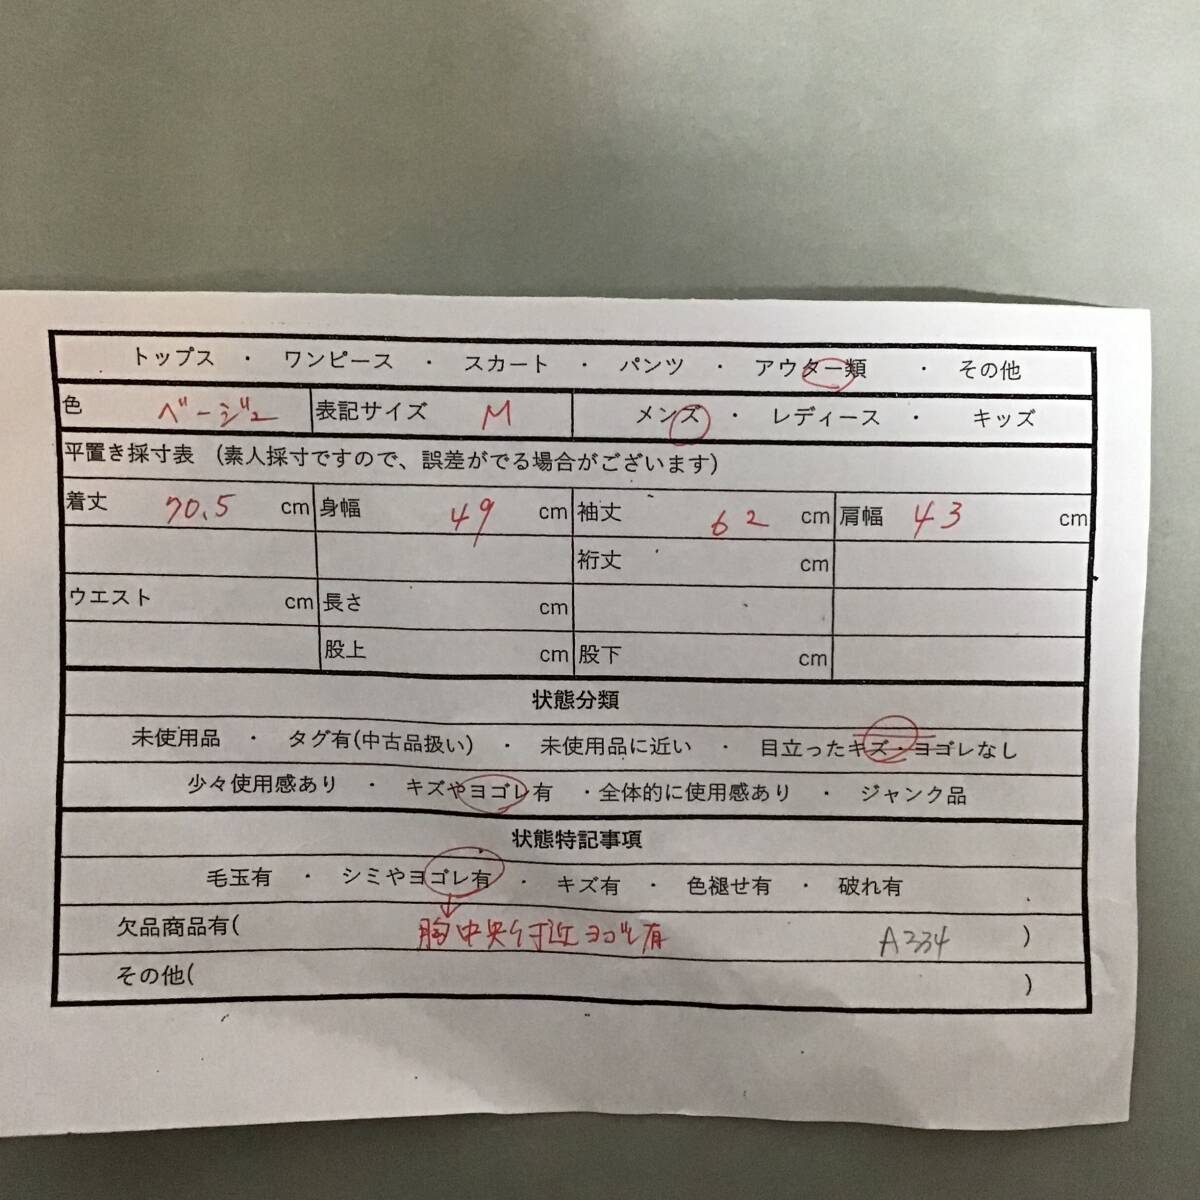 トップス ・ ワンピース ・ スカート ・ パンツ ・ アウター類 ・ その他
色 ベージュ 表記サイズ M メンズ ・ レディース ・ キッズ
平置き採寸表 (素人採寸ですので、誤差がでる場合がございます)
着丈 70.5 cm 身幅 49 cm 袖丈 62 cm 肩幅 43 cm
裄丈 cm
ウエスト cm 長さ cm
股上 cm 股下 cm
状態分類
未使用品 ・ タグ有(中古品扱い) ・ 未使用品に近い ・ 目立ったキズ・ヨゴレなし
少々使用感あり ・ キズやヨゴレ有 ・全体的に使用感あり ・ ジャンク品
状態特記事項
毛玉有 ・ シミやヨゴレ有 ・ キズ有 ・ 色褪せ有 ・ 破れ有
欠品商品有( 胸中央付近ヨゴレ有 A334 )
その他( )